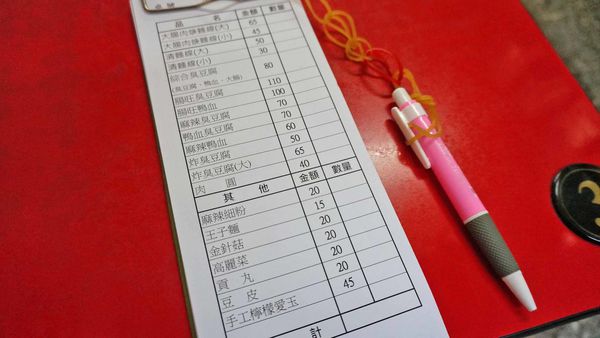 品 名 金額 數量
大腸肉焿麵線(大) 65
大腸肉焿麵線(小) 45
清麵線(大) 50
清麵線(小) 30
綜合臭豆腐 80
(臭豆腐、鴨血、大腸)
腸旺臭豆腐 110
腸旺鴨血 100
麻辣臭豆腐 70
鴨血臭豆腐 70
麻辣鴨血 60
炸臭豆腐 50
炸臭豆腐(大) 65
肉 圓 40
其 他 金額 數量
麻辣細粉 20
王子麵 15
金針菇 20
高麗菜 20
貢 丸 20
豆 皮 20
手工檸檬愛玉 45
計